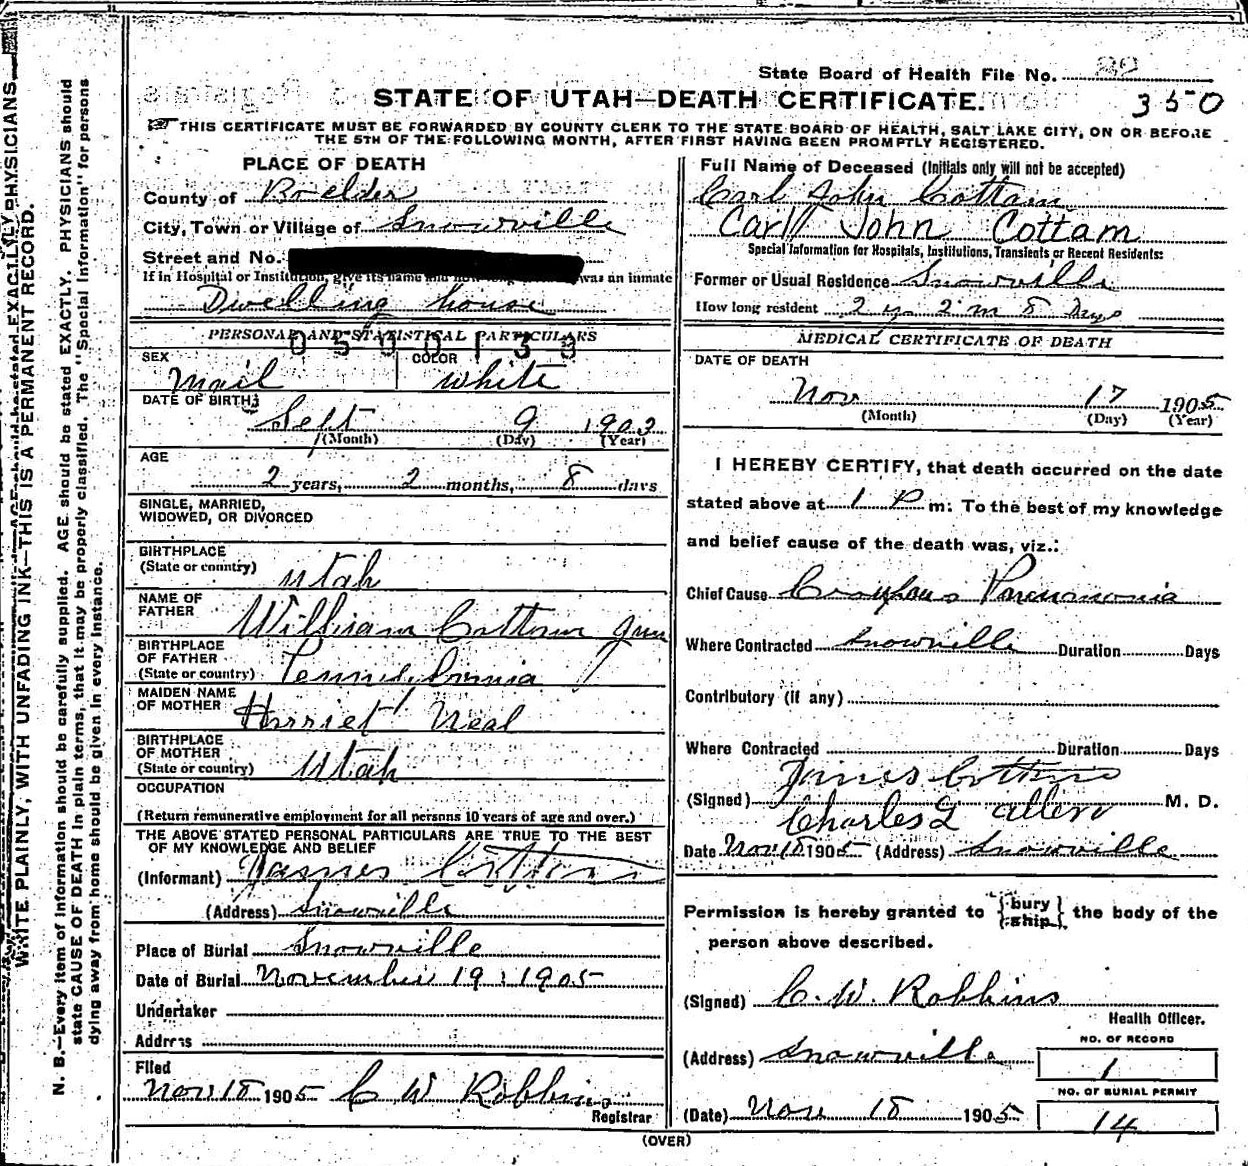 State Board of Health File No. 20
STATE OF UTAH—DEATH CERTIFICATE. 350
THIS CERTIFICATE MUST BE FORWARDED BY COUNTY CLERK TO THE STATE BOARD OF HEALTH, SALT LAKE CITY, ON OR BEFORE
THE 5TH OF THE FOLLOWING MONTH, AFTER FIRST HAVING BEEN PROMPTLY REGISTERED.
WRITE PLAINLY, WITH UNFADING INK—THIS IS A PERMANENT RECORD.
N. B.—Every item of information should be carefully supplied. AGE should be stated EXACTLY. PHYSICIANS should
state CAUSE OF DEATH in plain terms, that it may be properly classified. The "Special Information" for persons
dying away from home should be given in every instance.
PLACE OF DEATH
County of Boelder
City, Town or Village of Snowville
Street and No.
If in Hospital or Institution, give its name and was an inmate
Dwelling house
PERSONAL AND STATISTICAL PARTICULARS
0500139
SEX COLOR
Mail White
DATE OF BIRTH
Sept 9 1903
(Month) (Day) (Year)
AGE
2 years, 2 months, 8 days
SINGLE, MARRIED,
WIDOWED, OR DIVORCED
BIRTHPLACE
(State or country) Utah
NAME OF
FATHER William Cottam Jun
BIRTHPLACE
OF FATHER
(State or country) Pennsilvania
MAIDEN NAME
OF MOTHER Harriet Neal
BIRTHPLACE
OF MOTHER
(State or country) Utah
OCCUPATION
(Return remunerative employment for all persons 10 years of age and over.)
THE ABOVE STATED PERSONAL PARTICULARS ARE TRUE TO THE BEST
OF MY KNOWLEDGE AND BELIEF
(Informant) James
(Address) Snowville
Place of Burial Snowville
Date of Burial November 19 1905
Undertaker
Address
Filed
Nov 18 1905 C W Robbins
Registrar
Full Name of Deceased (Initials only will not be accepted)
Carl John Cottam
Carl John Cottam
Special Information for Hospitals, Institutions, Transients or Recent Residents:
Former or Usual Residence Snowville
How long resident 2 y 2 m 8 Days
MEDICAL CERTIFICATE OF DEATH
DATE OF DEATH
Nov 17 1905
(Month) (Day) (Year)
I HEREBY CERTIFY, that death occurred on the date
stated above at 1 P m: To the best of my knowledge
and belief cause of the death was, viz.:
Chief Cause Pneumonia
Where Contracted Snowville Duration Days
Contributory (if any)
Where Contracted Duration Days
James
(Signed) M. D.
Charles G Allen
Date Nov 18 1905 (Address) Snowville
Permission is hereby granted to {bury ship} the body of the
person above described.
(Signed) C. W. Robbins
Health Officer.
(Address) Snowville
NO. OF RECORD
1
NO. OF BURIAL PERMIT
(Date) Nov 18 1905 14
(OVER)